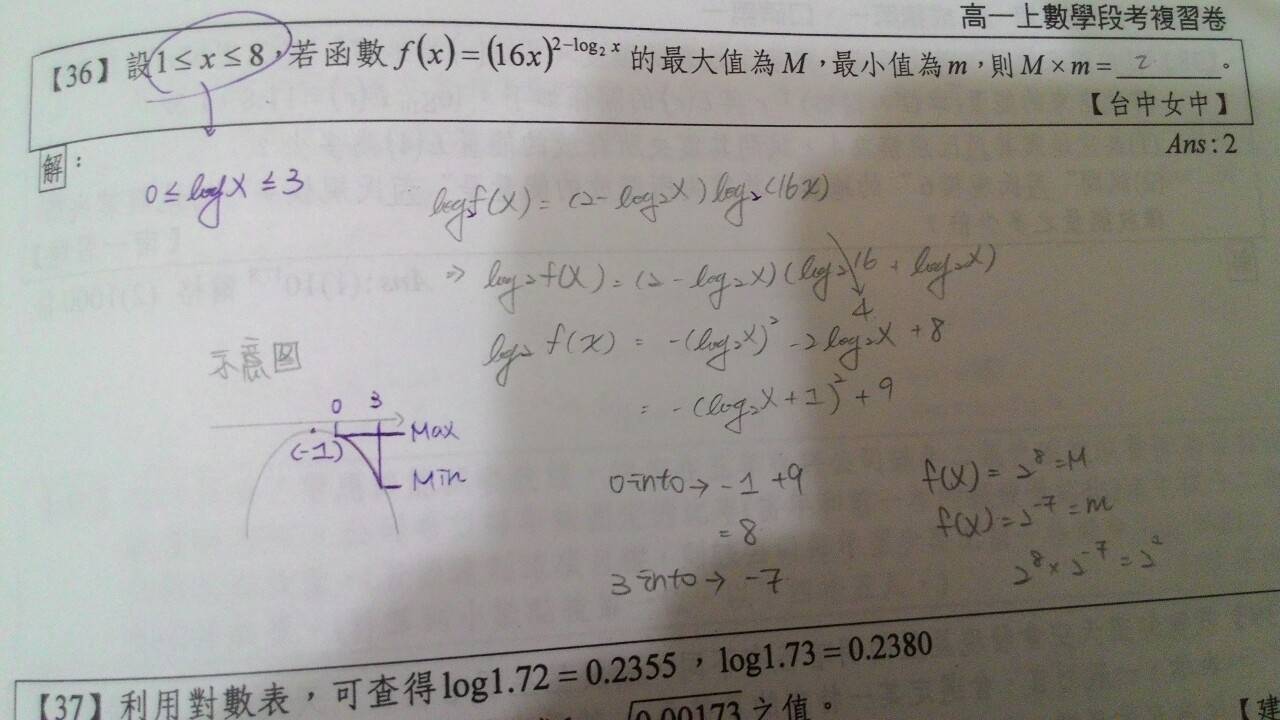 高一上數學段考複習卷
【36】設1≤x≤8，若函數 f(x)=(16x)^{2-log₂ x} 的最大值為M，最小值為m，則M×m= 2 。
【台中女中】
Ans:2
解：
0≤log₂X≤3
log₂f(X)=(2-log₂X)log₂(16X)
⇒ log₂f(X)=(2-log₂X)(log₂16+log₂X)
4
log₂f(X)=-(log₂X)²-2log₂X+8
=-(log₂X+1)²+9
示意図
0 3
(-1)
Max
Min
0 into→ -1+9
=8
3 into→ -7
f(X)=2⁸=M
f(X)=2⁻⁷=m
2⁸×2⁻⁷=2
【37】利用對數表，可查得log1.72=0.2355，log1.73=0.2380
√0.00173之值。
【建